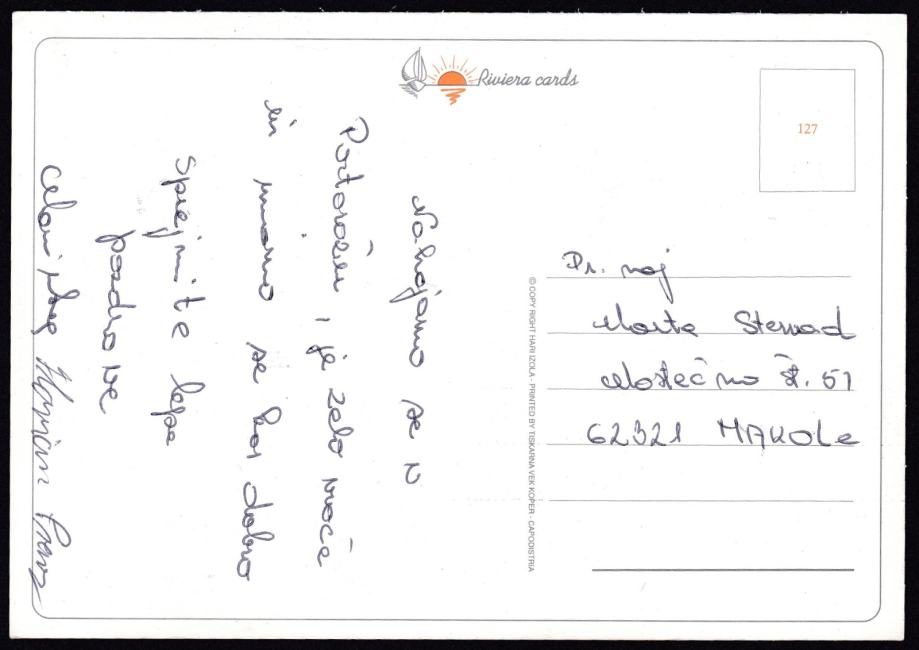 Riviera cards
127
Nahajamo se v
Portorožu, je zelo vroče
in imamo se kar dobro
Sprejmite lepe
pozdrave
Pr. naj
Marta Sternad
Mostečno št. 51
62321 MAKOLE
© COPY RIGHT HARI IZOLA - PRINTED BY TISKARNA VEK KOPER - CAPODISTRIA